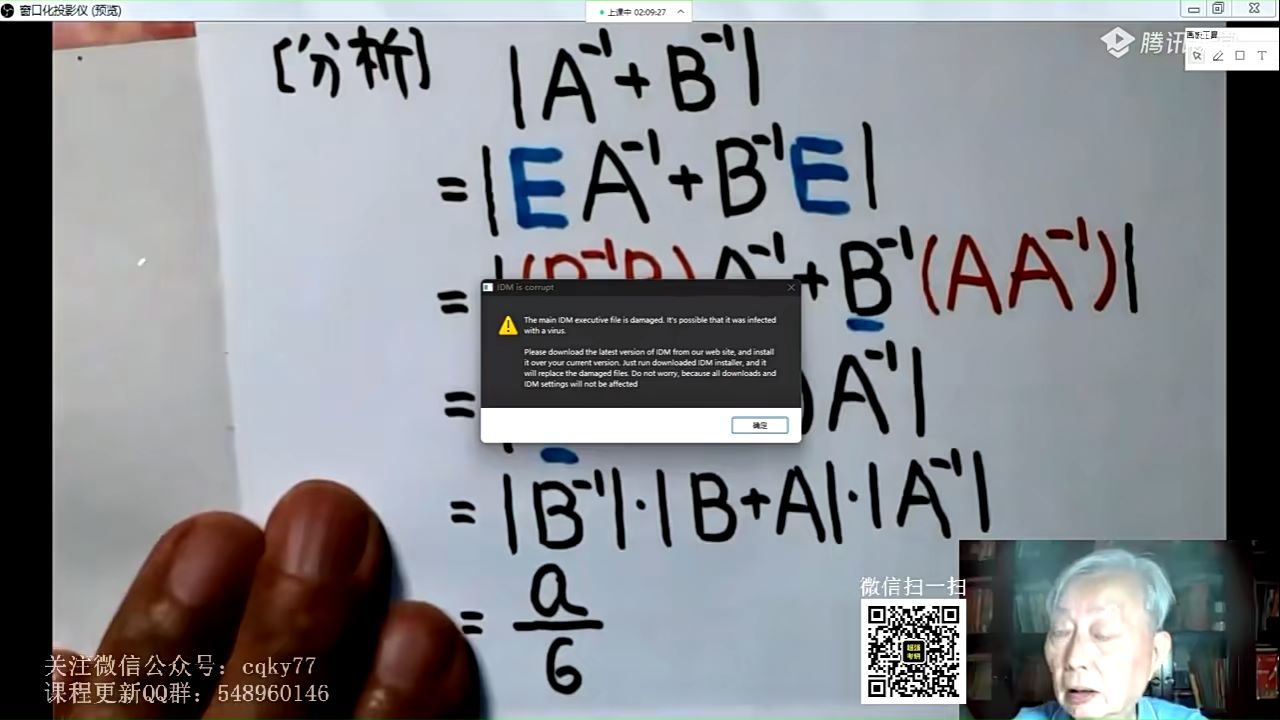 窗口化投影仪 (预览)
上课中 02:09:27
腾讯
画板工具
T
[分析] |A⁻¹+B⁻¹|
=|EA⁻¹+B⁻¹E|
=|(B⁻¹B)A⁻¹+B⁻¹(AA⁻¹)|
IDM is corrupt
The main IDM executive file is damaged. It's possible that it was infected
with a virus.
Please download the latest version of IDM from our web site, and install
it over your current version. Just run downloaded IDM installer, and it
will replace the damaged files. Do not worry, because all downloads and
IDM settings will not be affected
确定
= )A⁻¹|
=|B⁻¹|·|B+A|·|A⁻¹|
= a
6
微信扫一扫
关注微信公众号：cqky77
课程更新QQ群：548960146